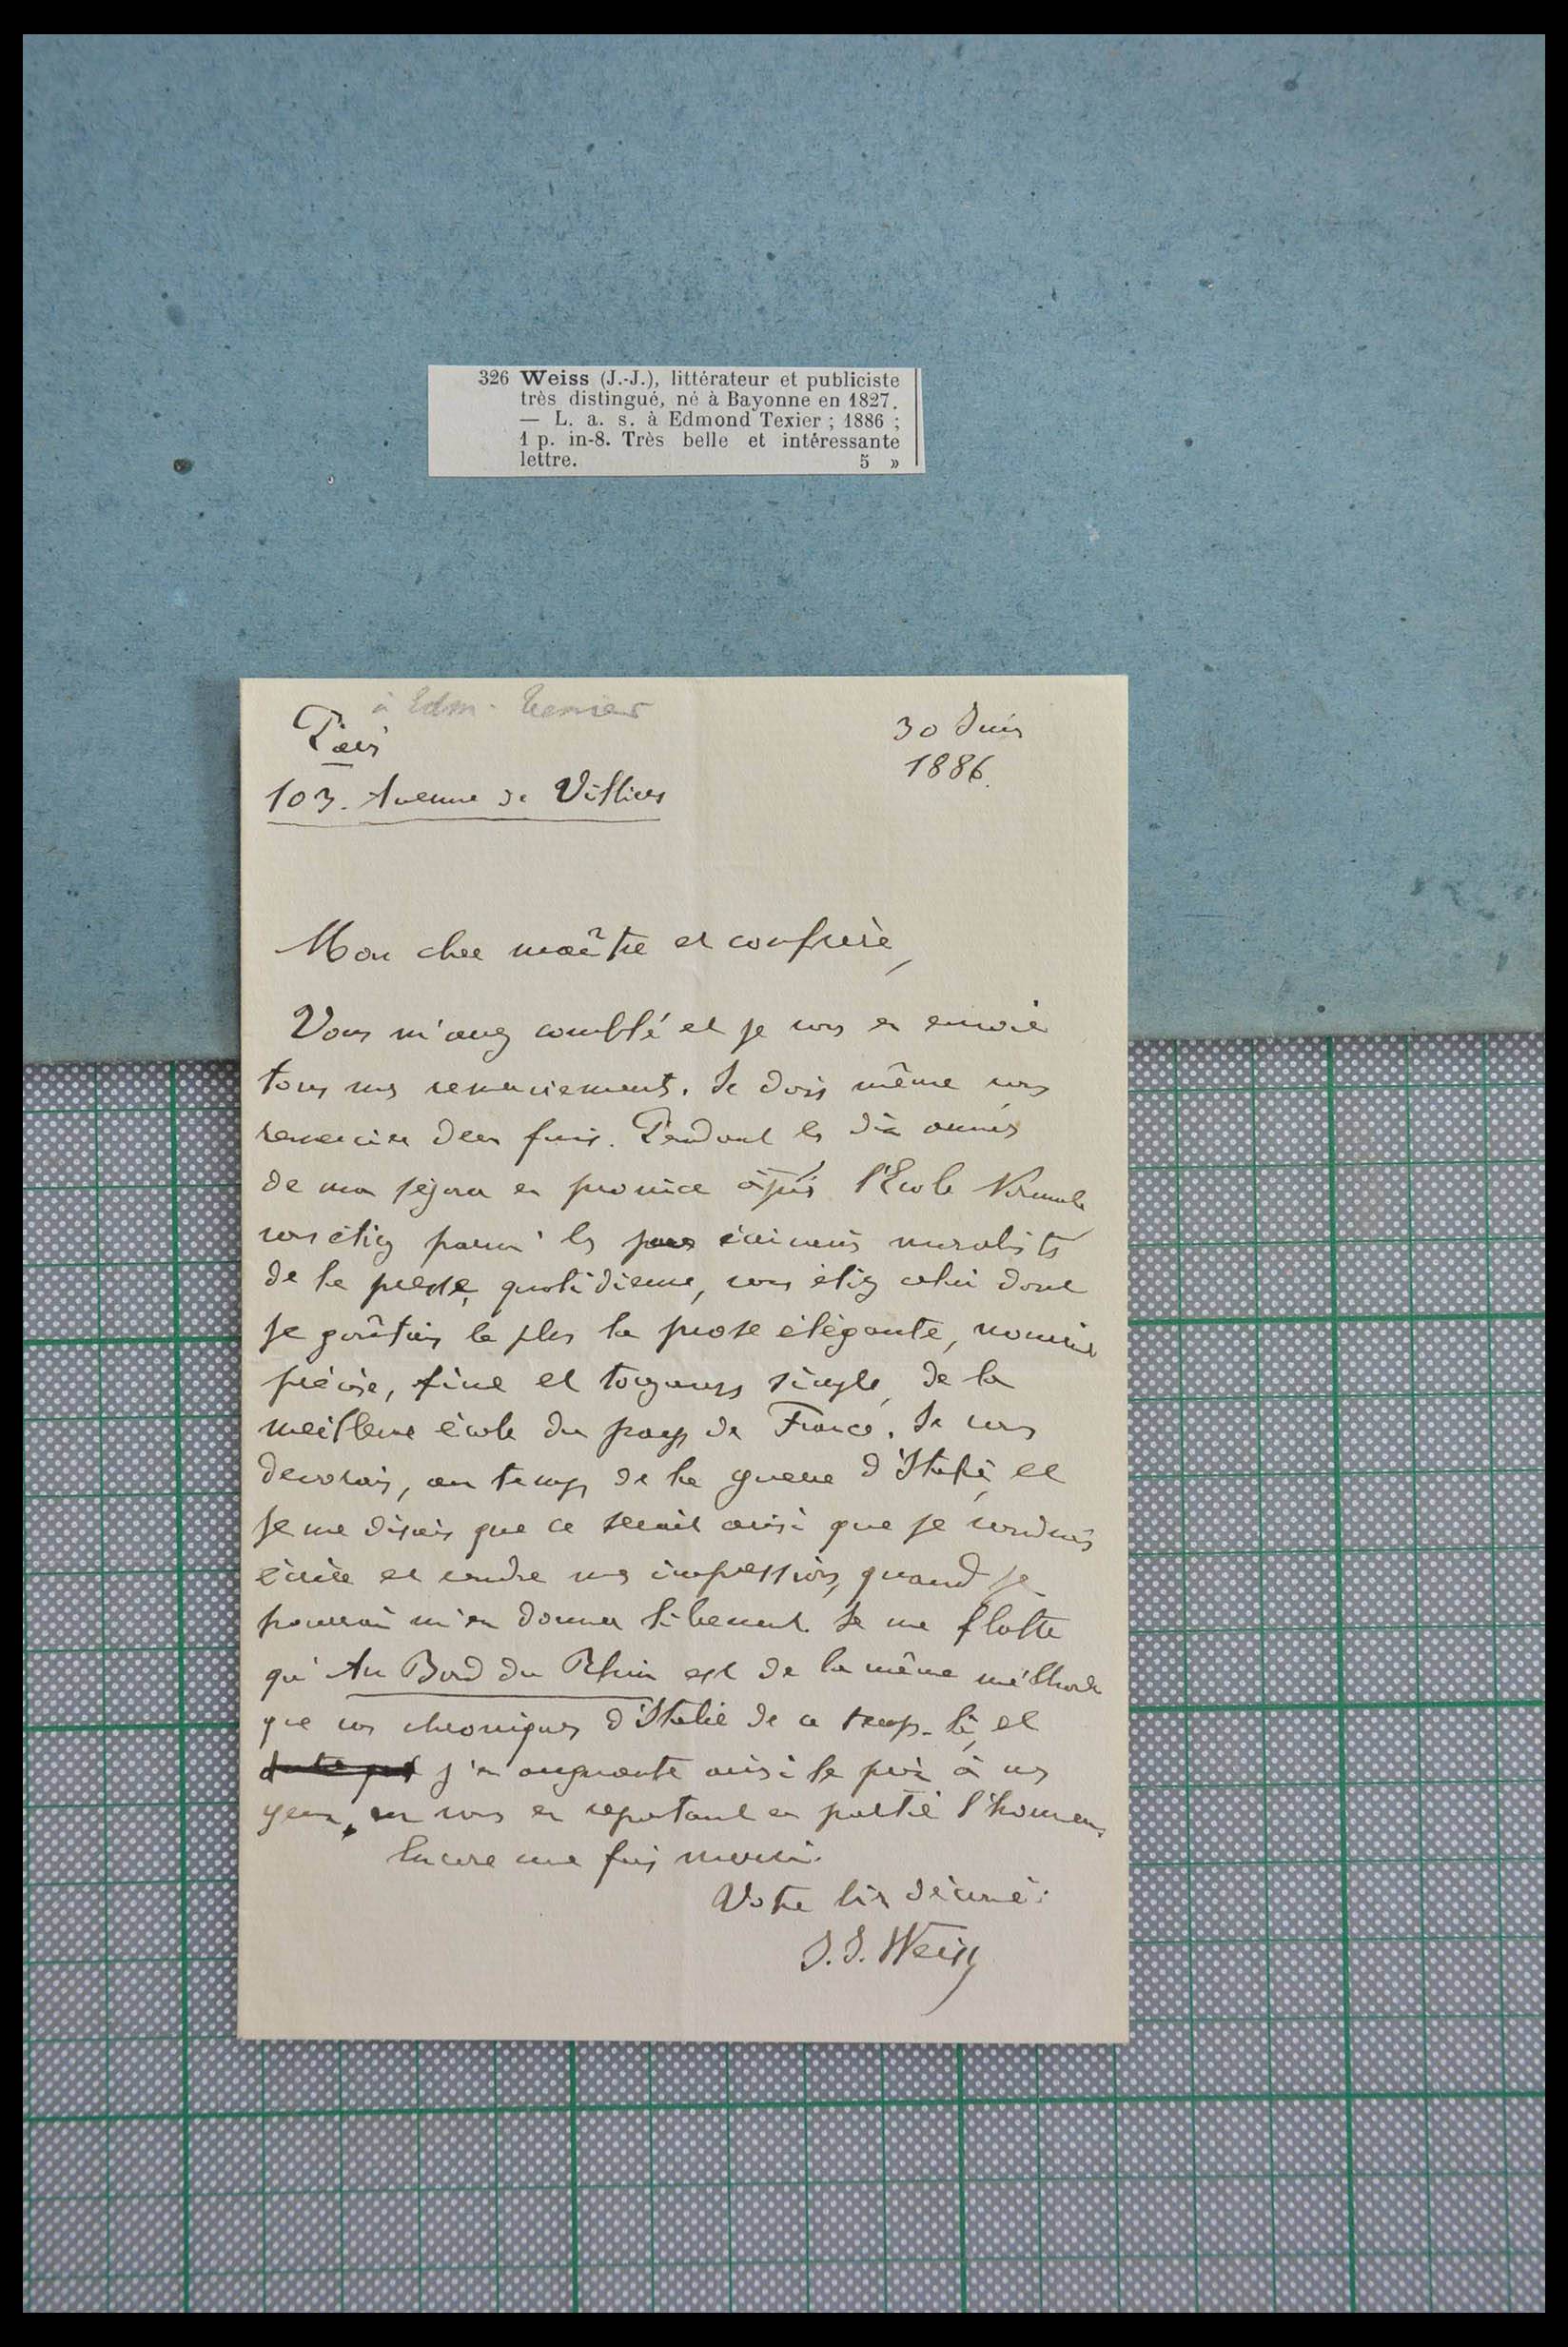 326 Weiss (J.-J.), littérateur et publiciste
très distingué, né à Bayonne en 1827.
— L. a. s. à Edmond Texier ; 1886 ;
1 p. in-8. Très belle et intéressante
lettre. 5 »
à Edm. Texier
Paris
30 Juin
1886.
103. Avenue de Villiers
Mon cher maître et confrère,
Vous m'avez comblé et je vous en envoie
tous mes remerciements. Je dois même vous
remercier deux fois. Pendant les dix années
de mon séjour en province après l'Ecole Normale
vous étiez parmi les écrivains moralistes
de la presse quotidienne, vous étiez celui dont
je goûtais le plus la prose élégante, nourrie
précise, fine et toujours simple, de la
meilleure école du pays de France. Je vous
dévorais, au temps de la guerre d'Italie, et
je me disais que ce serait ainsi que je voudrais
écrire et rendre mes impressions, quand je
pourrai m'en donner librement. Je me flatte
qu'Au Bord du Rhin est de la même méthode
que vos chroniques d'Italie de ce temps-là, et
j'en augmente ainsi le prix à vos
yeux, en vous en reportant en partie l'honneur
Encore une fois merci.
Votre bien dévoué:
J. J. Weiss